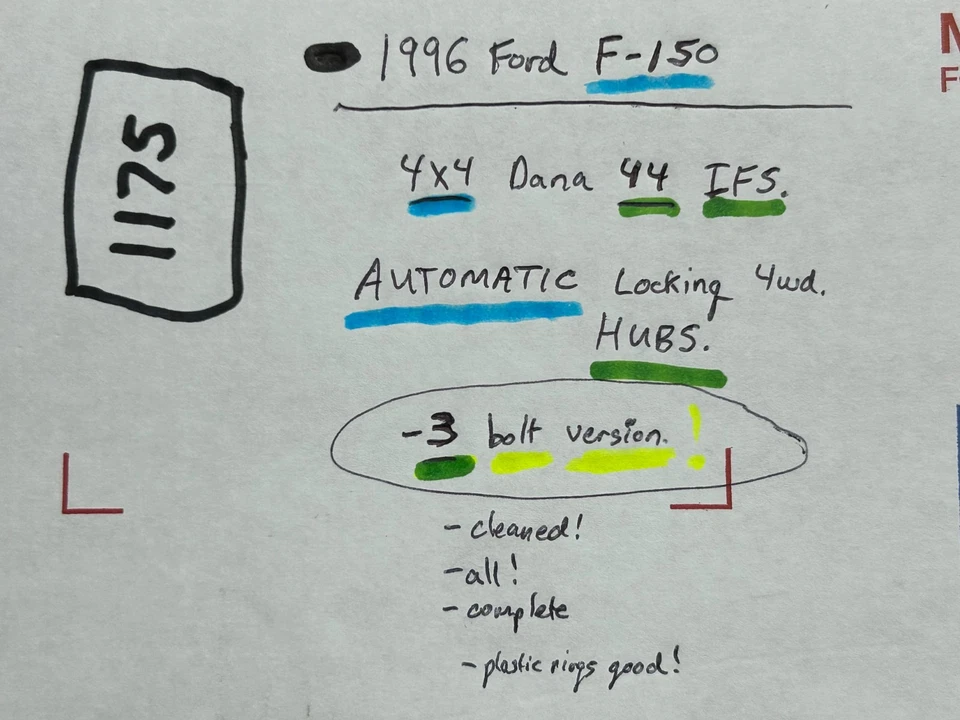 1996 Ford F-150
1175
4x4 Dana 44 IFS.
AUTOMATIC Locking 4wd.
HUBS.
-3 bolt version.!
- cleaned!
- all!
- complete
- plastic rings good!